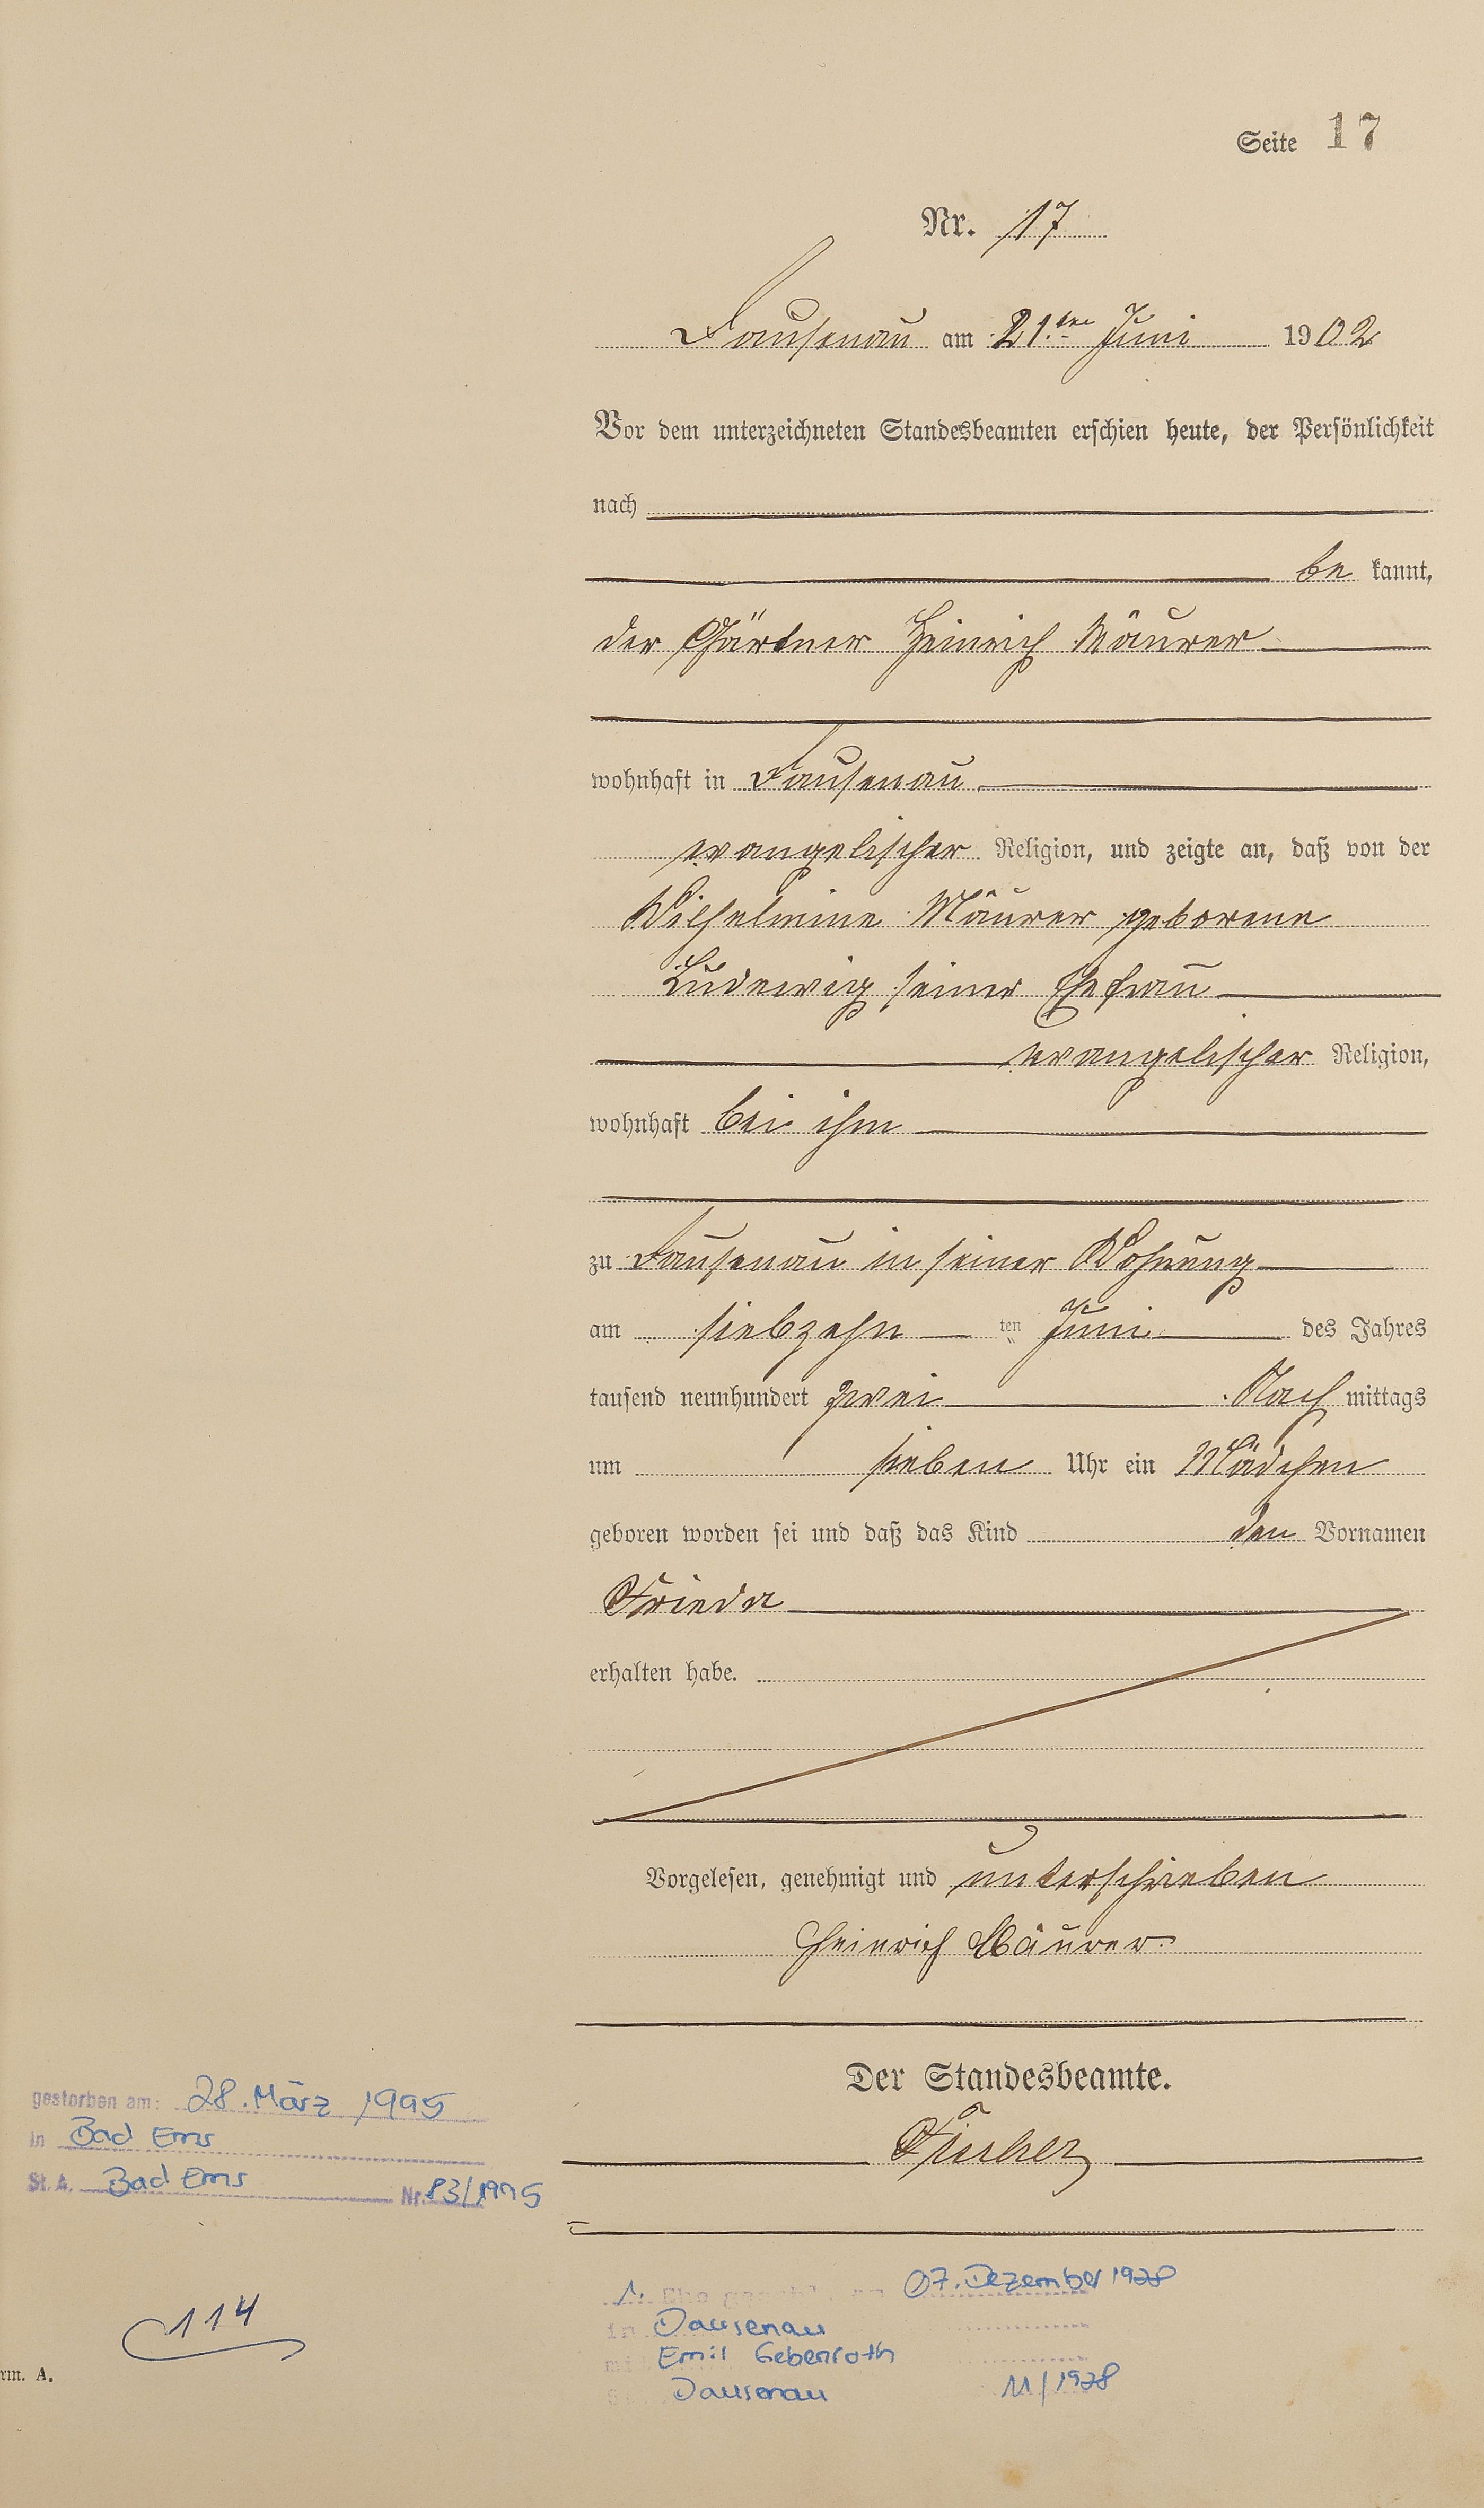 Seite 17
Nr. 17
Dausenau am 21.ten Juni 1902
Vor dem unterzeichneten Standesbeamten erschien heute, der Persönlichkeit
nach
be kannt,
der Gärtner Heinrich Mäurer
wohnhaft in Dausenau
evangelischer Religion, und zeigte an, daß von der
Wilhelmine Mäurer geborene
Ludewig seiner Ehefrau
evangelischer Religion,
wohnhaft bei ihm
zu Dausenau in seiner Wohnung
am siebzehn ten Juni des Jahres
tausend neunhundert zwei Nach mittags
um sieben Uhr ein Mädchen
geboren worden sei und daß das Kind den Vornamen
Frieda
erhalten habe.
Vorgelesen, genehmigt und unterschrieben
Heinrich Mäurer
Der Standesbeamte.
gestorben am: 28. März 1995
in Bad Ems
St. A. Bad Ems Nr. 83/1995
1. Ehe 07. Dezember 1928
in Dausenau
Emil Gebenroth
Dausenau 11/1928
114
rm. A.